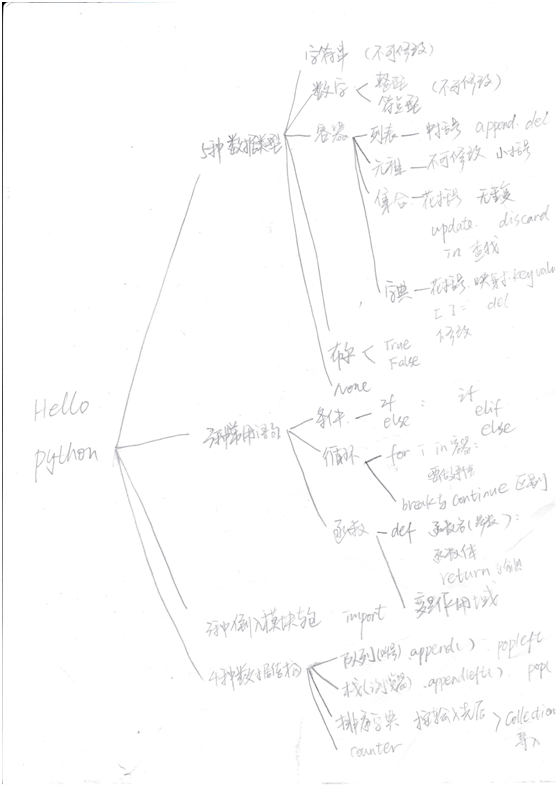 Hello
python
5种数据类型
字符串 (不可修改)
数字 < 整型 (不可修改)
浮点型
容器
列表 — 中括号 append. del
元祖 — 不可修改 小括号
集合 - 花括号 无重复
update. discard
in 查找
字典 — 花括号. 映射. key valu
[ ] = del
修改
布尔 < True
False
None
3种常用语句
条件. — if : if
else elif
else
循环 for i in 容器:
break与continue 区别
函数 — def 函数名(参数):
函数体
return
变量作用域
3种倒入模块包 import
4种数据结构
队列(叫号) .append( ) . popleft
栈(浏览器) .appendleft( ) . pop(
排序字典 按输入先后 > Collection
counter 导入